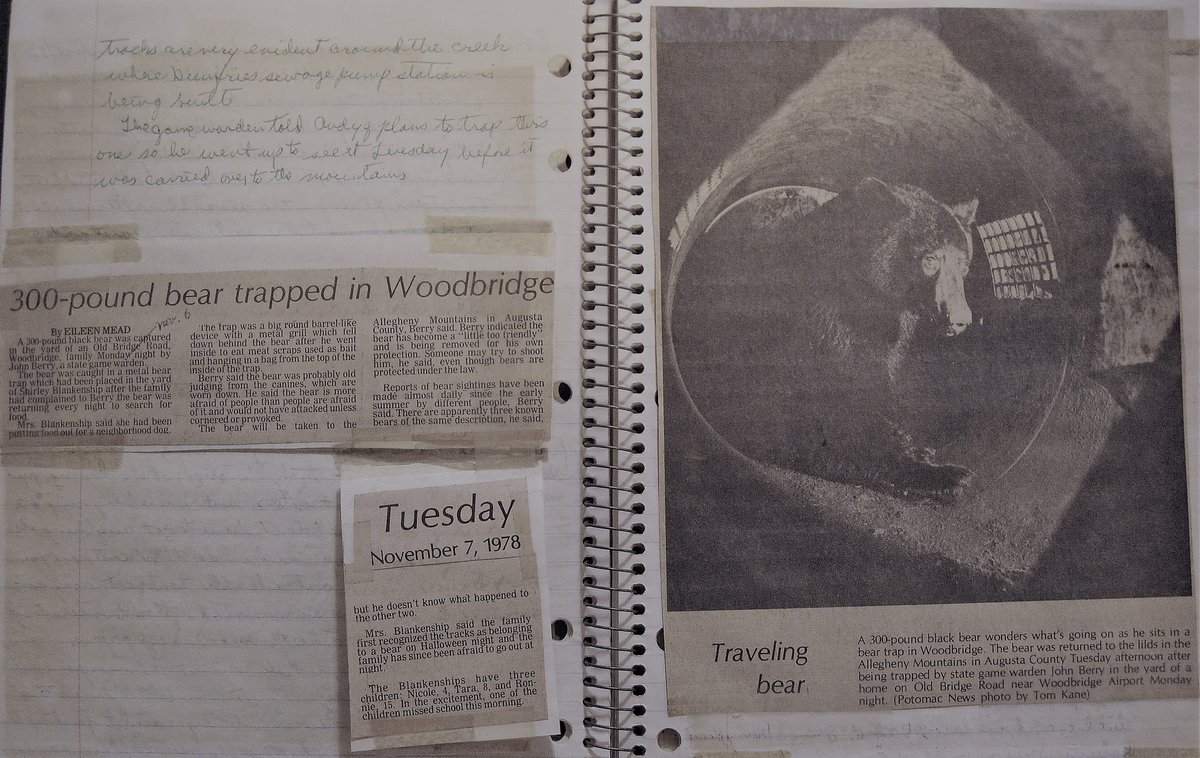 tracks are very evident around the creek
where Dumfries sewage pump station is
being built
The game warden told Andy of plans to trap this
one so he went up to see it Tuesday before it
was carried over to the mountains
300-pound bear trapped in Woodbridge
nov. 6
By EILEEN MEAD
A 300-pound black bear was captured
in the yard of an Old Bridge Road,
Woodbridge, family Monday night by
John Berry, a state game warden.
The bear was caught in a metal bear
trap which had been placed in the yard
of Shirley Blankenship after the family
had complained to Berry the bear was
returning every night to search for
food.
Mrs. Blankenship said she had been
putting food out for a neighborhood dog.
The trap was a big round barrel-like
device with a metal grill which fell
down behind the bear after he went
inside to eat meat scraps used as bait
and hanging in a bag in the top of the
inside of the trap.
Berry said the bear was probably old
judging from the canines, which are
worn down. He said the bear is more
afraid of people than people are afraid
of it and would not have attacked unless
cornered or provoked.
The bear will be taken to the
Allegheny Mountains in Augusta
County, Berry said. Berry indicated the
bear has become a "little too friendly"
and is being removed for his own
protection. Someone may try to shoot
him, he said, even though bears are
protected under the law.
Reports of bear sightings have been
made almost daily since the early
summer by different people, Berry
said. There are apparently three known
bears of the same description, he said,
Tuesday
November 7, 1978
but he doesn't know what happened to
the other two.
Mrs. Blankenship said the family
first recognized the tracks as belonging
to a bear on Halloween night and the
family has since been afraid to go out at
night.
The Blankenships have three
children: Nicole, 4, Tara, 8, and Ron-
nie, 15. In the excitement, one of the
children missed school this morning.
Traveling
bear
A 300-pound black bear wonders what's going on as he sits in a
bear trap in Woodbridge. The bear was returned to the lilds in the
Allegheny Mountains in Augusta County Tuesday afternoon after
being trapped by state game warden John Berry in the yard of a
home on Old Bridge Road near Woodbridge Airport Monday
night. (Potomac News photo by Tom Kane)